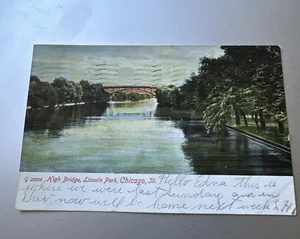 G 20012 High Bridge, Lincoln Park, Chicago, Ill. Hello Edna this is
where we were last Sunday am in
Dav now will be home next week